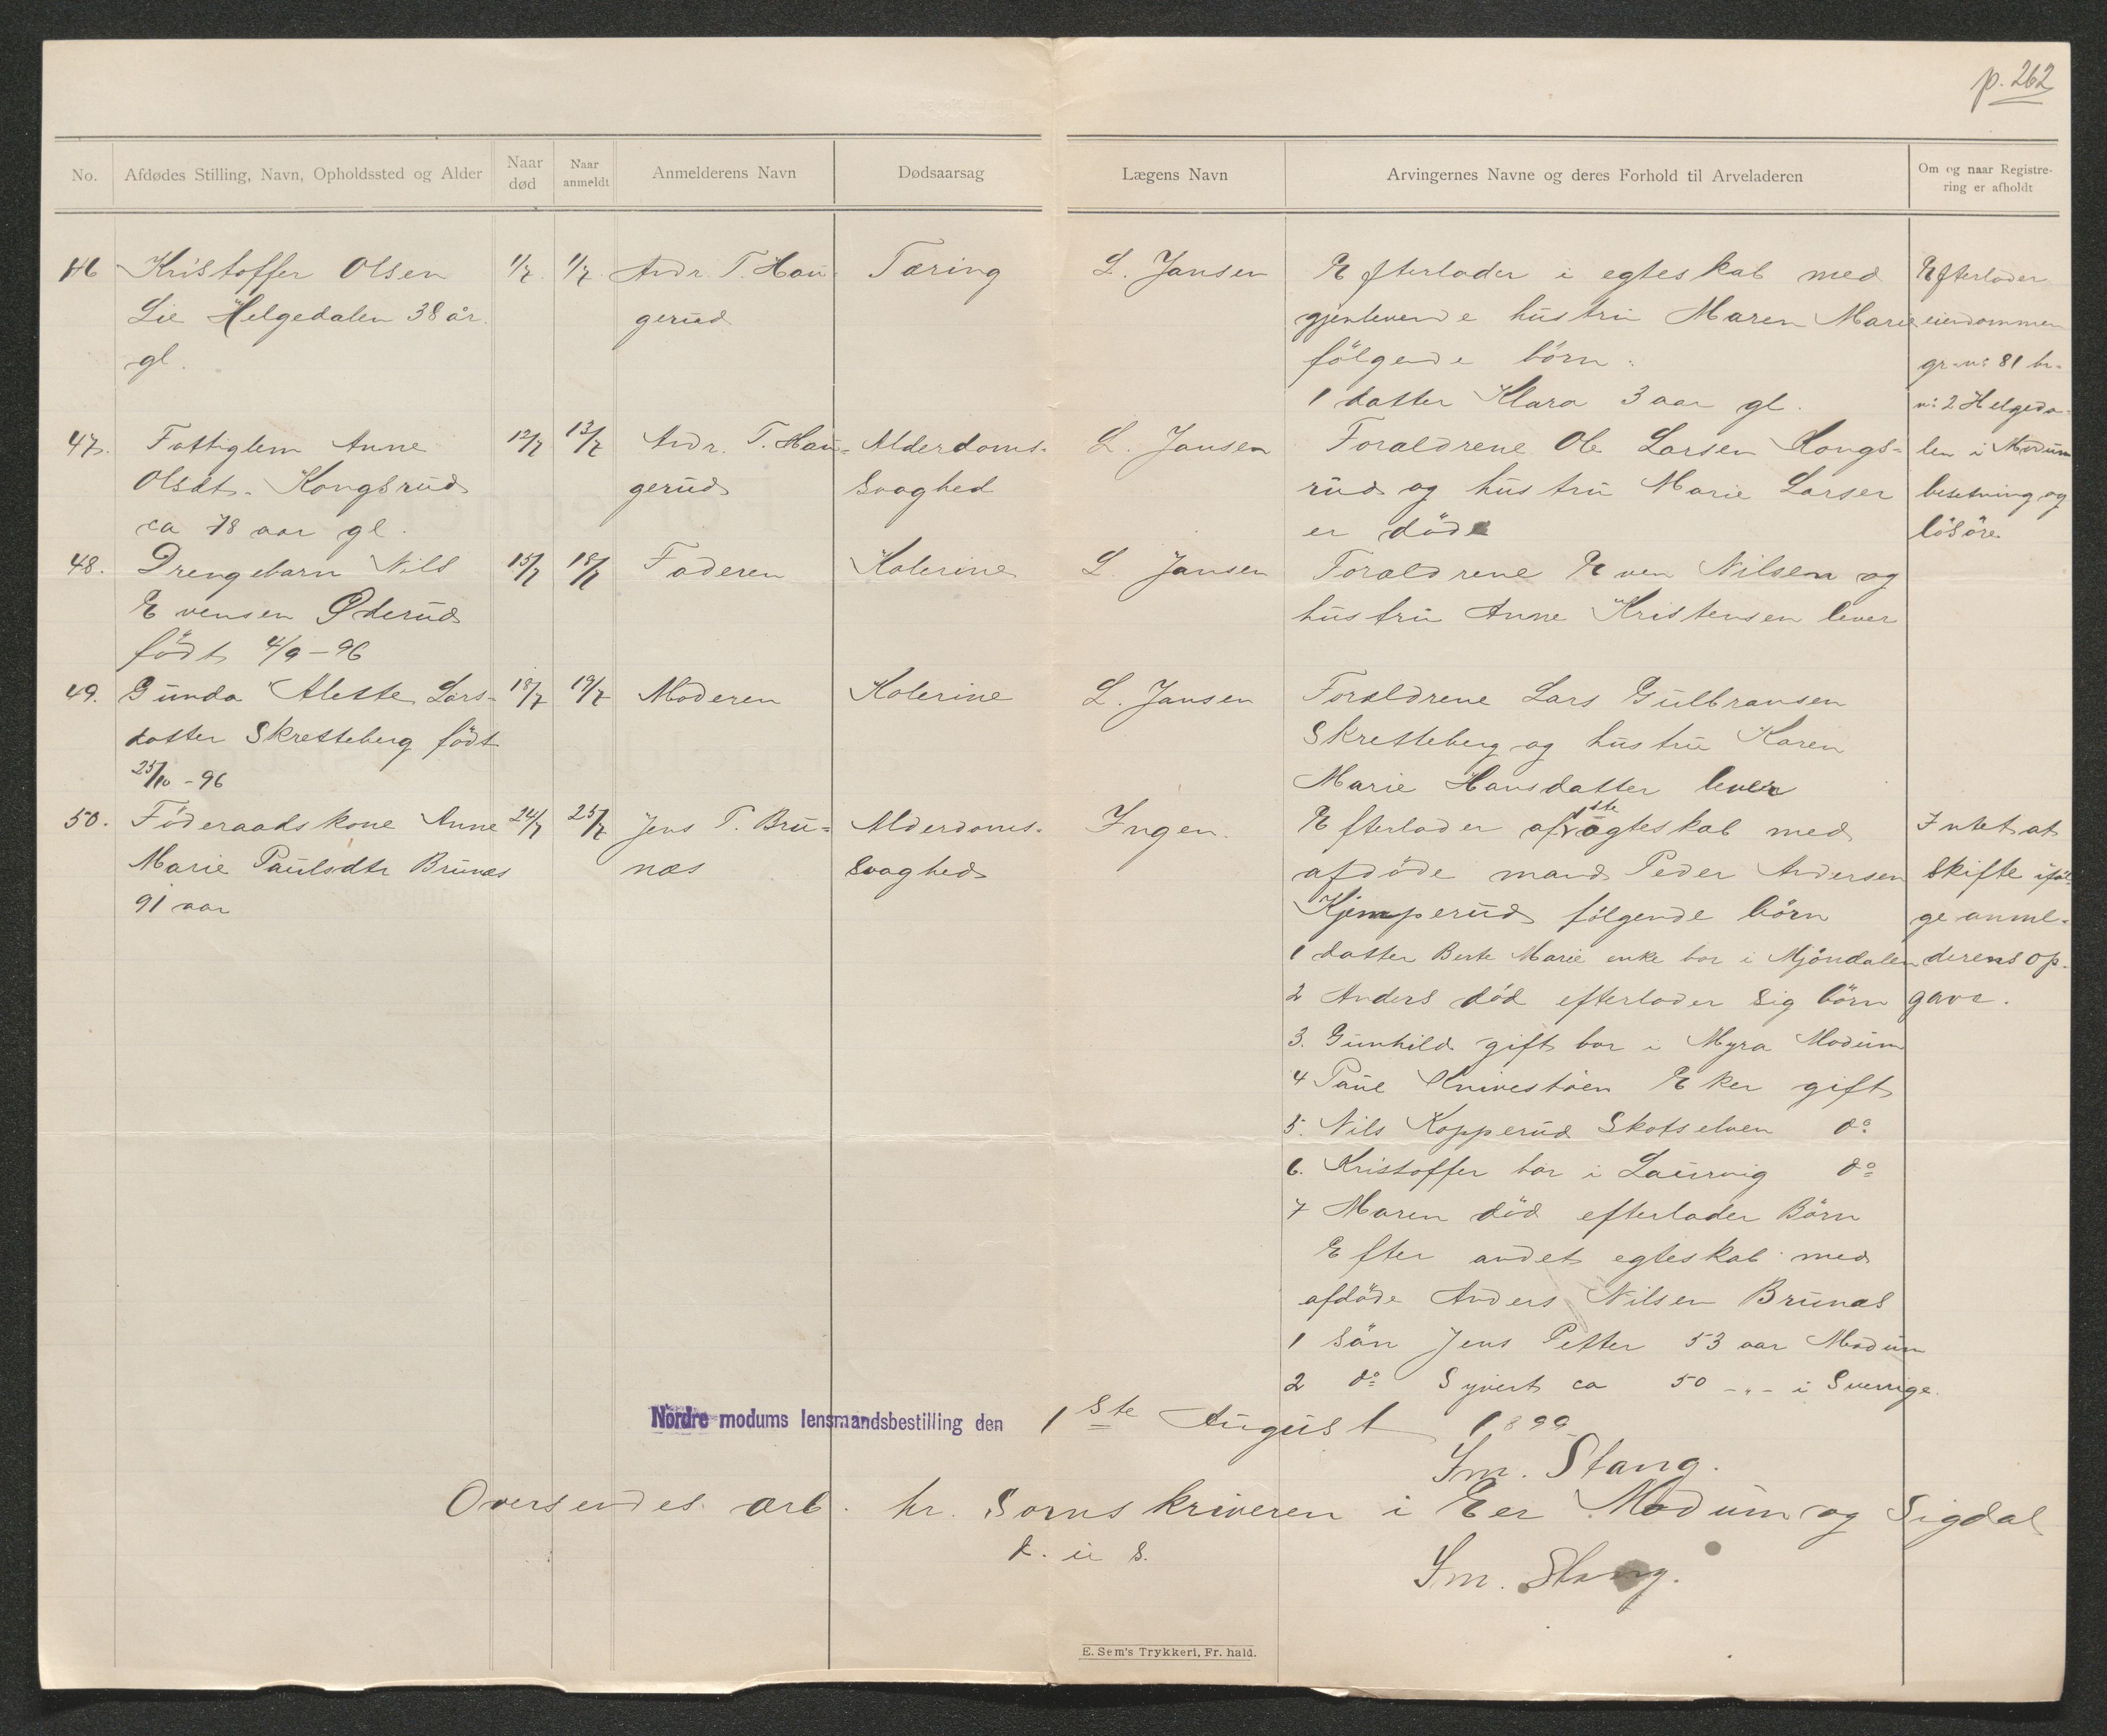 p. 262
No. Afdødes Stilling, Navn, Opholdssted og Alder Naar død Naar anmeldt Anmelderens Navn Dødsaarsag Lægens Navn Arvingernes Navne og deres Forhold til Arveladeren Om og naar Registrering er afholdt
46 Kristoffer Olsen 1/7 1/7 Andr. T. Hau- Tæring L. Jansen Efterlader i egteskab med Efterlader
Lie Helgedalen 38 år gerud gjenlevende hustru Maren Marie eiendommen
gl. følgende börn: gr. n: 81 br.
1 datter Klara 3 aar gl. n: 2 Helgeda-
47. Fattiglem Anne 12/7 13/7 Andr. T. Hau- Alderdoms- L. Jansen Forældrene Ole Larsen Kongs- len i Modum
Olsdt. Kongsrud gerud svaghed rud og hustru Marie Larsen besetning og
ca 78 aar gl. er döde lösöre.
48. Drengebarn Nils 15/7 18/7 Faderen Kolerine L. Jansen Forældrene Even Nilsen og
Evensen Øderud hustru Anne Kristensen lever
födt 4/9-96
49. Gunda Alette Lars- 18/7 19/7 Moderen Kolerine L. Jansen Forældrene Lars Gulbransen
datter Skretteberg födt Skretteberg og hustru Karen
25/10-96 Marie Hansdatter lever
50. Föderaadskone Anne 24/7 25/7 Jens P. Bru- Alderdoms- Ingen. Efterlader af 1ste ægteskab med Intet at
Marie Paulsdtr Brunæs næs svaghed afdöde mand Peder Andersen skifte iföl-
91 aar Kjemperud fölgende börn ge anmel-
1 datter Berte Marie enke bor i Mjöndalen derens op-
2 Anders död efterlader sig börn gave.
3. Gunhild gift bor i Myra Modum
4 Paul Knivestöen Eker gift
5. Nils Kopperud Skotselven do
6. Kristoffer bor i Laurvig do
7 Maren död efterlader Börn
Efter andet egteskab med
afdöde Anders Nilsen Brunæs
1 sön Jens Petter 53 aar Modum
2 do Syvert ca 50 -"- i Sverrige.
Nordre modums lensmandsbestilling den 1ste August 1899
Im. Stang.
Oversendes ærb. hr. Sornskriveren i Eer Modum og Sigdal
Im. Stang.
E. Sem's Trykkeri, Fr. hald.